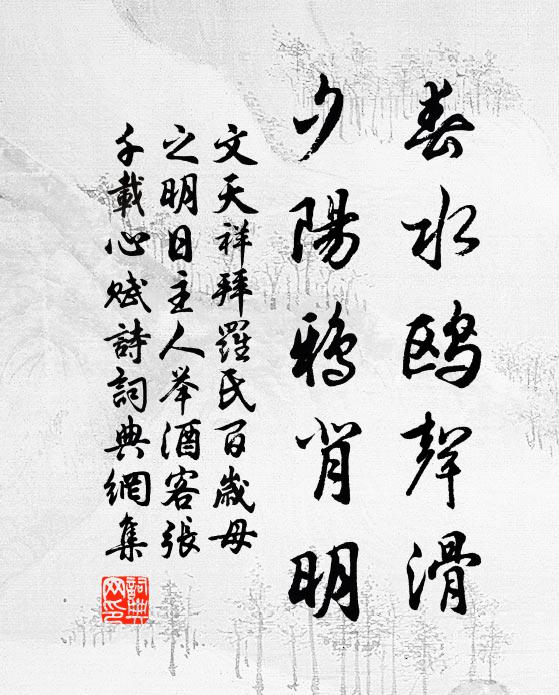 春水鸥聲滑
夕陽鴉背明
文天祥拜羅氏百歲母
之明日主人举酒客張
千載心赋詩詞典網集
詞典
网印